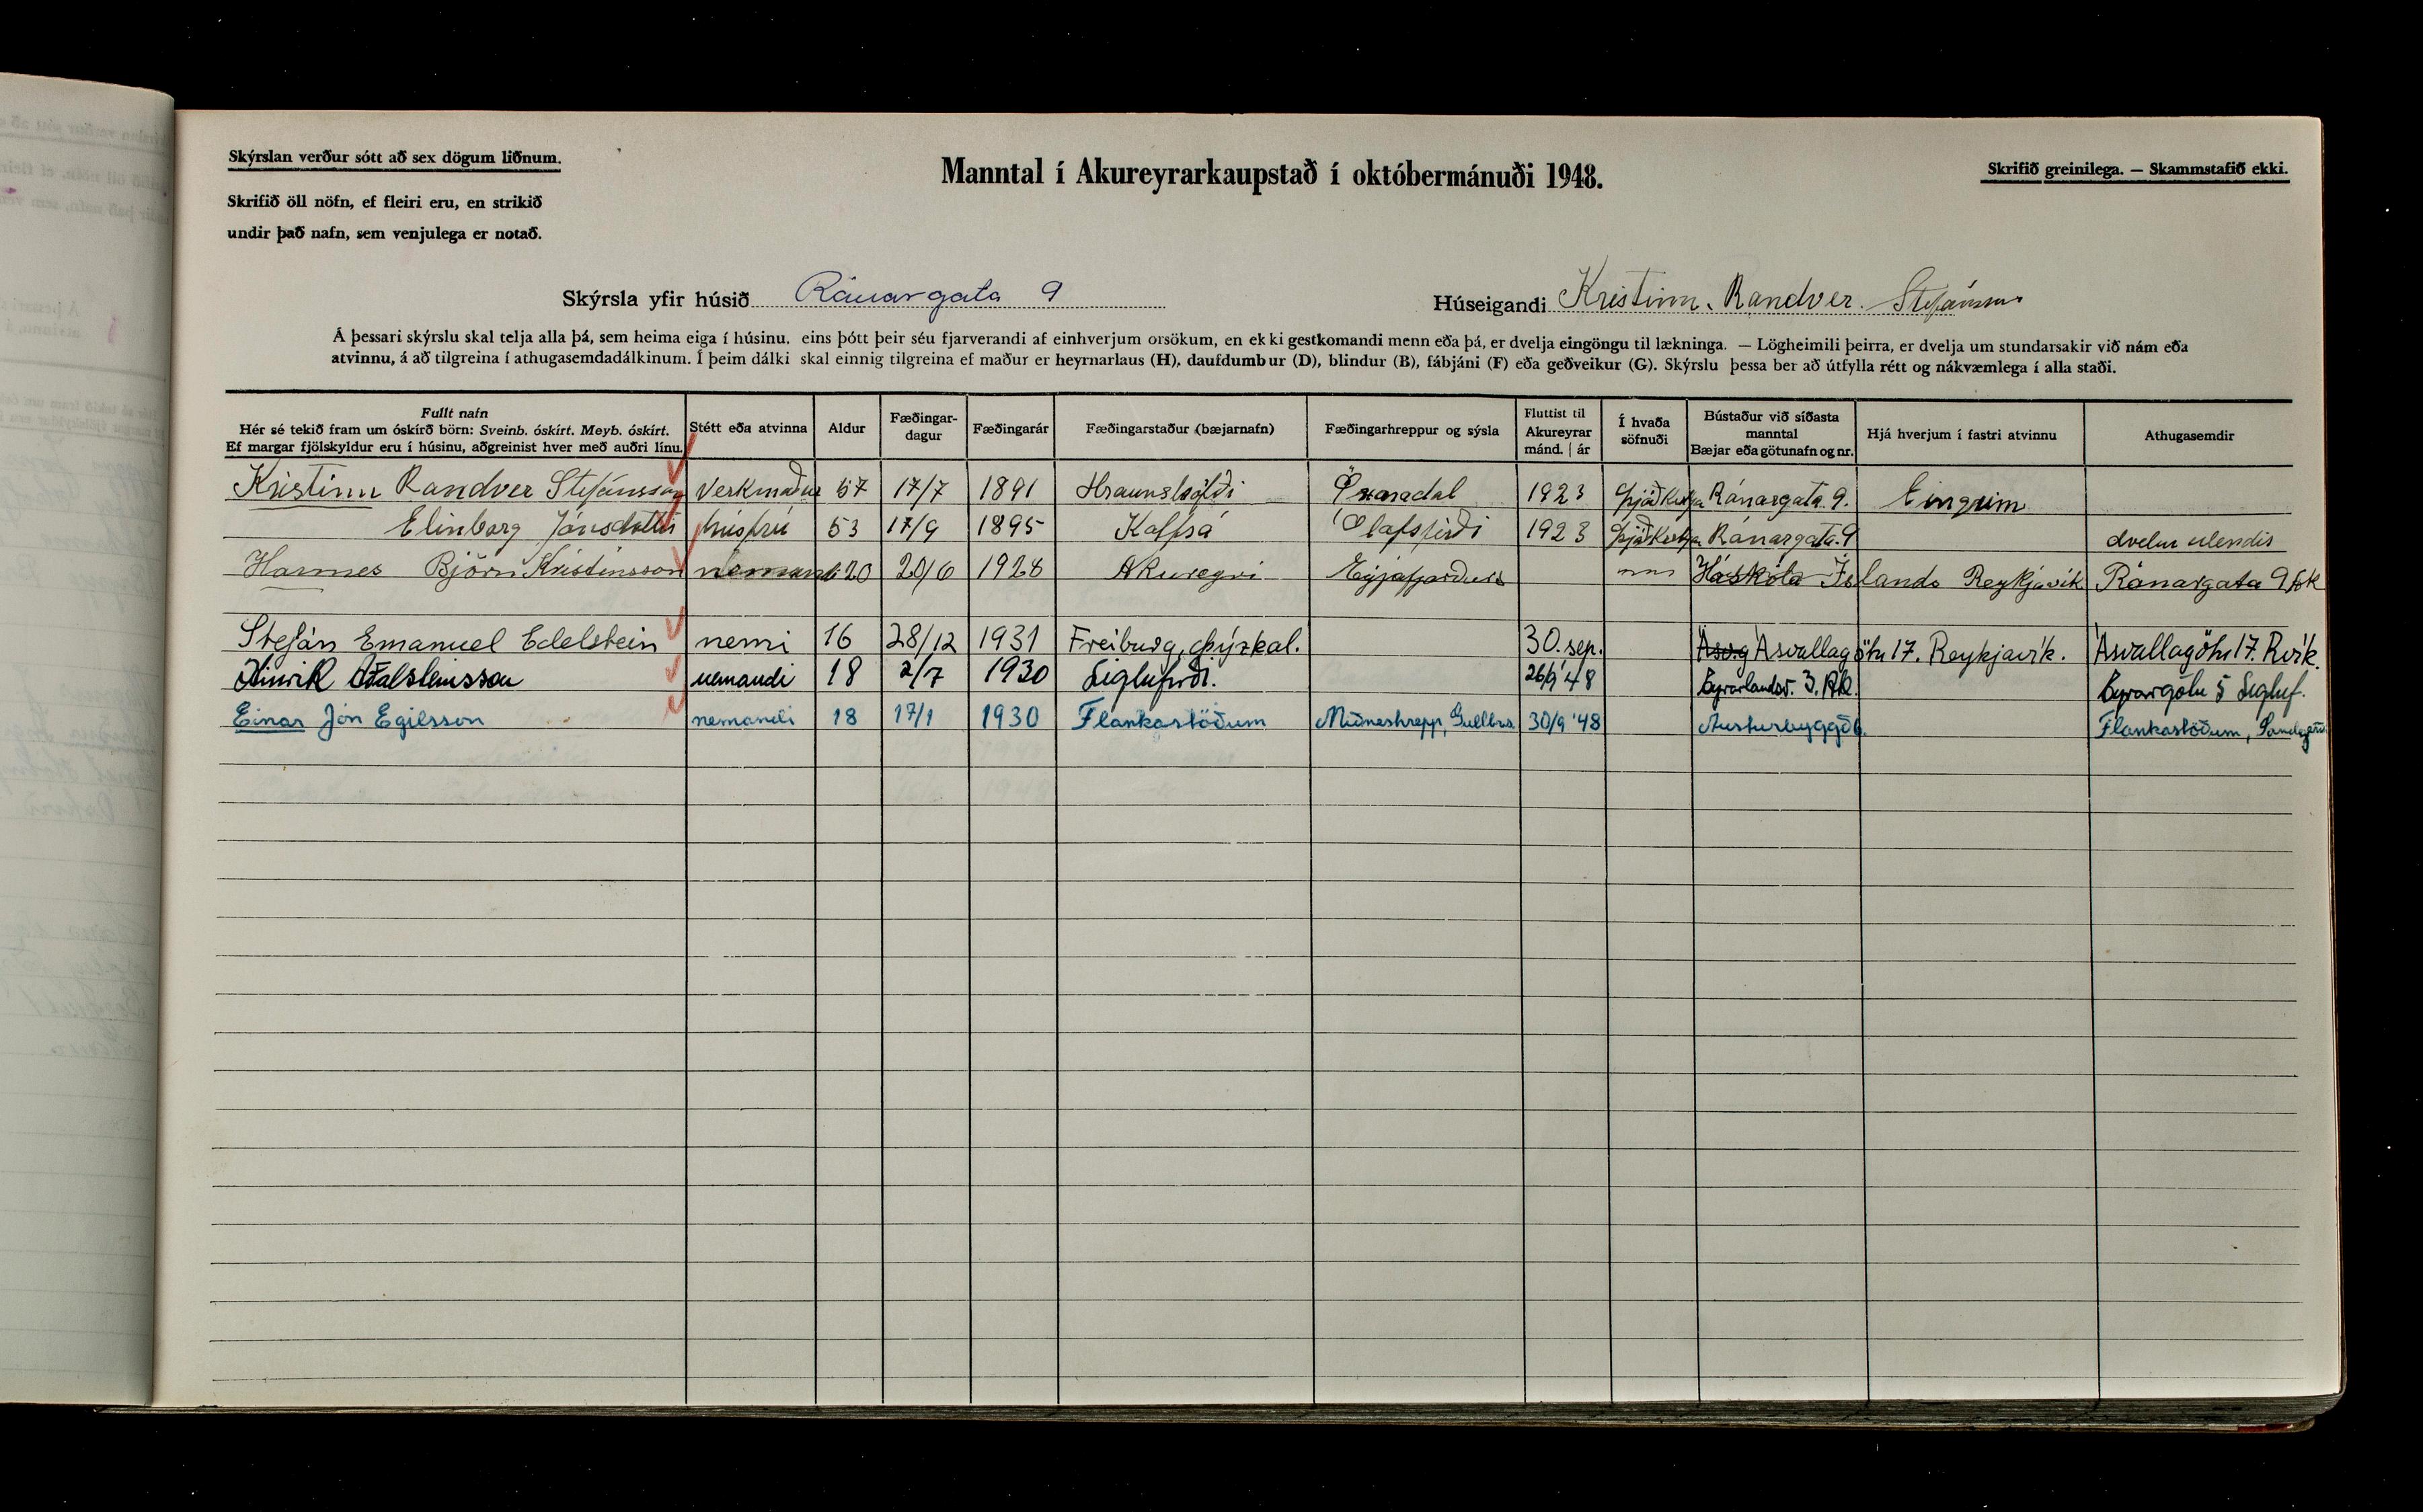 Skýrslan verður sótt að sex dögum liðnum.
Manntal í Akureyrarkaupstað í októbermánuði 1948.
Skrifið greinilega. — Skammstafið ekki.
Skrifið öll nöfn, ef fleiri eru, en strikið
undir það nafn, sem venjulega er notað.
Skýrsla yfir húsið Ránargata 9
Húseigandi Kristinn Randver Stefánsson
Á þessari skýrslu skal telja alla þá, sem heima eiga í húsinu, eins þótt þeir séu fjarverandi af einhverjum orsökum, en ekki gestkomandi menn eða þá, er dvelja eingöngu til lækninga. — Lögheimili þeirra, er dvelja um stundarsakir við nám eða
atvinnu, á að tilgreina í athugasemdadálkinum. Í þeim dálki skal einnig tilgreina ef maður er heyrnarlaus (H), daufdumbur (D), blindur (B), fábjáni (F) eða geðveikur (G). Skýrslu þessa ber að útfylla rétt og nákvæmlega í alla staði.
Fullt nafn
Hér sé tekið fram um óskírð börn: Sveinb. óskírt. Meyb. óskírt.
Ef margar fjölskyldur eru í húsinu, aðgreinist hver með auðri línu.
Stétt eða atvinna
Aldur
Fæðingar-
dagur
Fæðingarár
Fæðingarstaður (bæjarnafn)
Fæðingarhreppur og sýsla
Fluttist til
Akureyrar
mánd. | ár
Í hvaða
söfnuði
Bústaður við síðasta
manntal
Bæjar eða götunafn og nr.
Hjá hverjum í fastri atvinnu
Athugasemdir
Kristinn Randver Stefánsson Verkmaður 57 17/7 1891 Öxnadal 1923 Þjóðkirkja Ránargata 9. Eingum
Elinborg Jónsdóttir húsfrú 53 17/9 1895 Kálfsá Ólafsfirði 1923 Þjóðkirkja Ránargata 9 dvelur
Hannes Björn Kristinsson nemandi 20 20/6 1928 Akureyri Eyjafjarðars Háskóla Íslands Reykjavík Ránargata 9 Ak
Stefán Emanuel Edelstein nemi 16 28/12 1931 Freiburg, Þýzkal. 30. sep. Ásvallagötu 17. Reykjavík. Ásvallagötu 17. Rvík.
Hinrik Aðalsteinsson nemandi 18 2/7 1930 Siglufirði. 26/9 '48 Eyrarlandsv. 3. Ak. Eyrargötu 5 Sigluf.
Einar Jón Egilsson nemandi 18 17/1 1930 Flankastöðum Miðneshrepp, Gullbrs. 30/9 '48 Austurbyggð Flankastöðum, Sandgerði